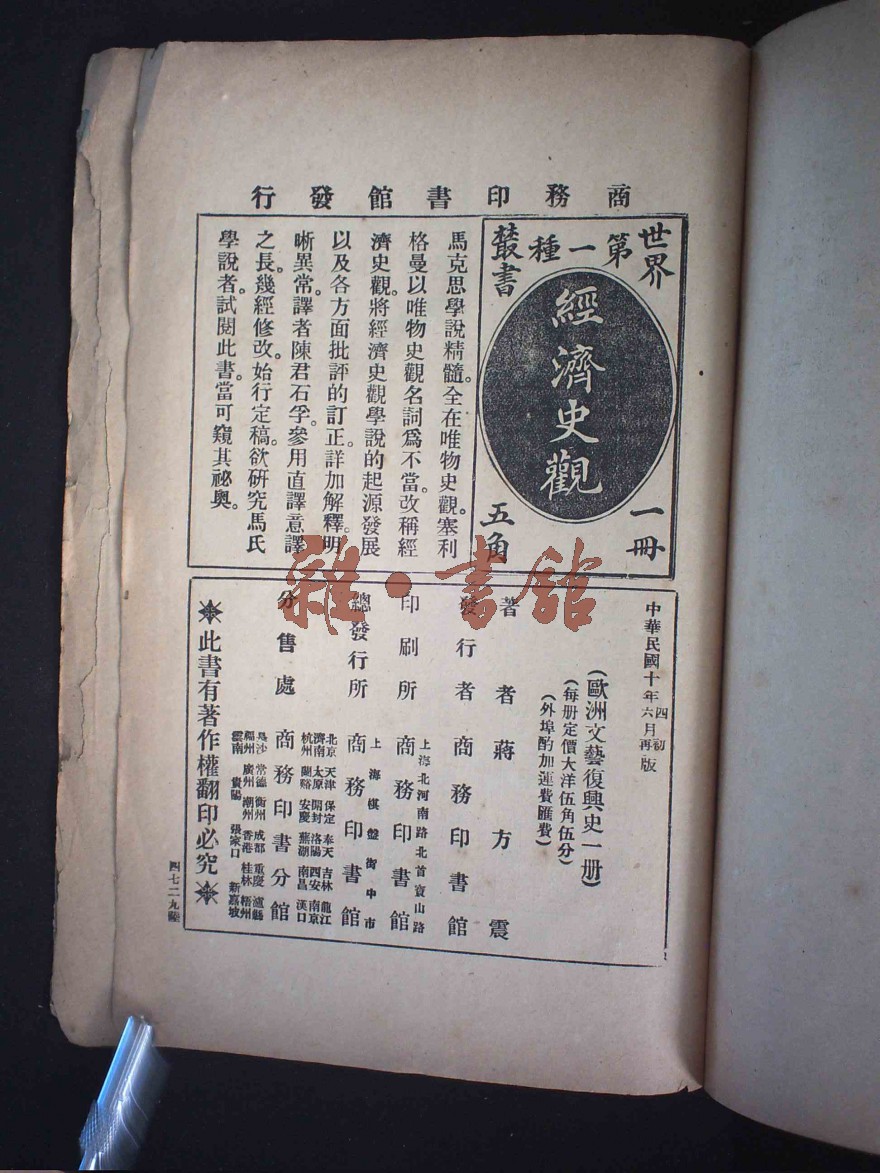 商務印書館發行
世界叢書
第一種
經濟史觀
一冊
五角
馬克思學說精髓。全在唯物史觀。塞利
格曼以唯物史觀名詞爲不當。改稱經
濟史觀。將經濟史觀學說的起源發展
以及各方面批評的訂正。詳加解釋。明
晰異常。譯者陳君石孚。參用直譯意譯
之長。幾經修改。始行定稿。欲研究馬氏
學說者。試閱此書。當可窺其祕奧。
中華民國十年四月初版
六月再版
(歐洲文藝復興史一册)
(每册定價大洋伍角伍分)
(外埠酌加運費匯費)
著者 蔣方震
發行者 商務印書館
印刷所 上海北河南路北首寶山路 商務印書館
總發行所 上海棋盤街中市 商務印書館
分售處 商務印書分館
北京 天津 保定 奉天 吉林 龍江
濟南 太原 開封 洛陽 西安 南京
杭州 蘭谿 安慶 蕪湖 南昌 漢口
長沙 常德 衡州 成都 重慶 瀘縣
福州 廣州 潮州 香港 桂林 梧州
雲南 貴陽 張家口 新嘉坡
此書有著作權翻印必究
四七二九陸
雜·書館